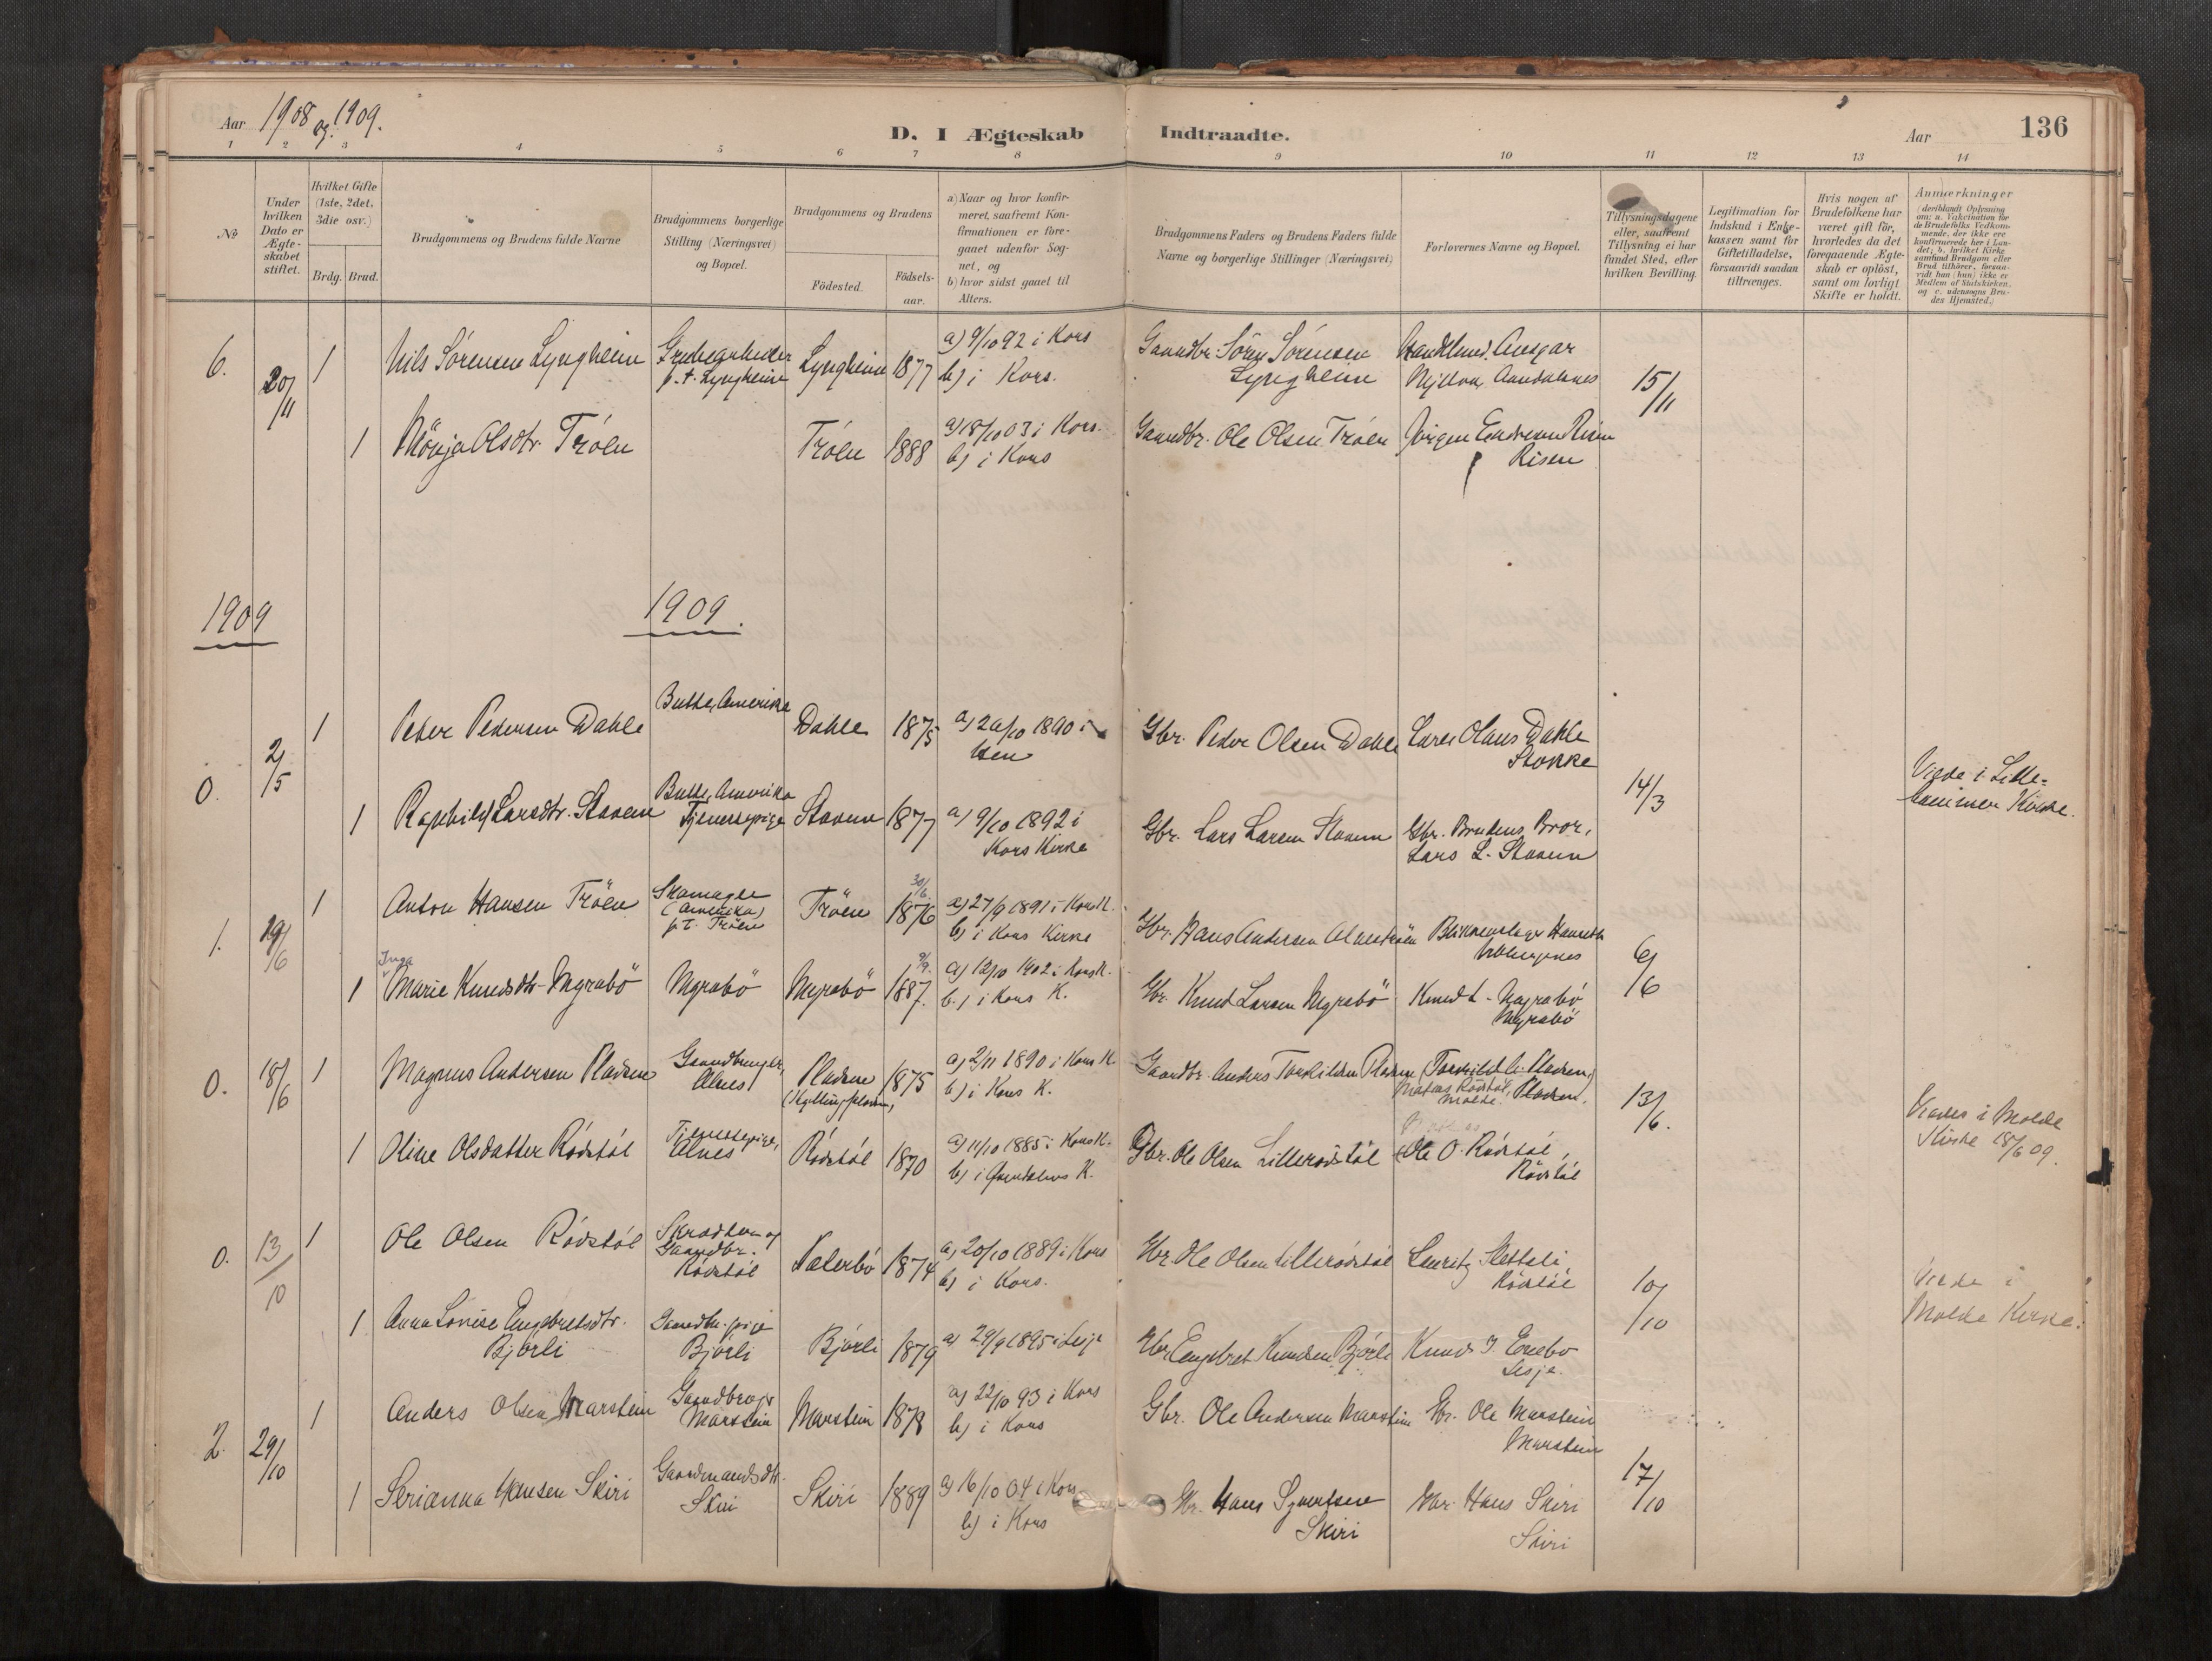 Aar 1908 og 1909.
D. I Ægteskab Indtraadte.
Aar
136
1 2 3 4 5 6 7 8 9 10 11 12 13 14
No
Under hvilken Dato er Ægteskabet stiftet.
Hvilket Gifte (1ste, 2det, 3die osv.)
Brdg. Brud.
Brudgommens og Brudens fulde Navne
Brudgommens borgerlige Stilling (Næringsvei) og Bopæl.
Brudgommens og Brudens
Födested.
Födselsaar.
a) Naar og hvor konfirmeret, saafremt Konfirmationen er foregaaet udenfor Sognet, og
b) hvor sidst gaaet til Alters.
Brudgommens Faders og Brudens Faders fulde Navne og borgerlige Stillinger (Næringsvei)
Forlovernes Navne og Bopæl.
Tillysningsdagene eller, saafremt Tillysning ei har fundet Sted, efter hvilken Bevilling.
Legitimation for Indskud i Enkekassen samt for Giftetilladelse, forsaavidt saadan tiltrænges.
Hvis nogen af Brudefolkene har været gift för, hvorledes da det foregaaende Ægteskab er oplöst, samt om lovligt Skifte er holdt.
Anmærkninger
(deriblandt Oplysning om: a. Vakcination for de Brudefolks Vedkommende, der ikke ere konfirmerede her i Landet; b. hvilket Kirkesamfund Brudgom eller Brud tilhörer, forsaavidt han (hun) ikke er Medlem af Statskirken, og c. udensogns Brudes Hjemsted.)
6. 20/11 1 Nils Sörensen Lyngheim
p.t. Lyngheim
Lyngheim 1877 a) 9/10 92 i Kors
b) i Kors.
Gaardbr. Sören Sörensen
Lyngheim
Aandalsnes
15/11
1 Olsdtr. Tröen Tröen 1888 a) 18/10 03 i Kors.
b) i Kors
Gaardbr. Ole Olsen Tröen
Jörgen Endresen Risen
Risen
1909 1909.
0. 2/5 1 Peter Pedersen Dahle Butte, Amerika Dahle 1875 a) 1890 i
Gbr. Peder Olsen Dahle Lars Olaus Dahle
Stokke
14/3
Viede i Lillehammer Kirke.
1 Ragnhild Larsdtr. Stavem Butte, Amerika
Tjenestepige
Stavem 1877 a) 9/10 1892 i
Kors Kirke
Gbr. Lars Larsen Stavem Gbr. Brudens Bror,
Lars L. Stavem
1. 19/6 1 Anton Hansen Tröen Skamagle
(Amerika)
p.t. Tröen
Tröen 30/6 1876 a) 27/9 1891 i Kors K.
b) i Kors Kirke
Gbr. Hans Andersen
6/6
1 Inga Marie Knudsdtr. Myrabö Myrabö Myrabö 9/9. 1887. a) 12/10 1902 i Kors K.
b.) i Kors K.
Gbr. Knud Larsen Myrabö Knud L. Myrabö
Myrabö
0. 18/6 1 Magnus Andersen Pladsen Gaardbruger,
Alnes
Pladsen
1875 a) 2/11 1890 i Kors K.
b) i Kors K.
Gaardbr. Anders Torkildsen Pladsen (Torkild A. Pladsen)
Molde. Pladsen.
13/6.
Viedes i Molde
Kirke 18/6 09.
1 Oline Olsdatter Rödstöl Tjenestepige,
Alnes
Rödstöl 1870 a) 11/10 1885 i Kors K.
b) i K.
Gbr. Ole Olsen Lillerödstöl Ole O. Rödstöl,
Rödstöl
0. 13/10 1 Ole Olsen Rödstöl Skrædder og
Gaardbr.
Rödstöl
1874 a) 20/10 1889 i Kors
b) i Kors.
Gbr. Ole Olsen Lillerödstöl Lauritz Slettali
Rödstöl
10/10
Viede i
Molde Kirke.
1 Anna Lovise Engebretsdtr.
Björli
Björli
Björli 1879 a) 29/9 1895 i Lesje
Gbr. Engebret Knudsen Björli Knud J. Enebo
Lesje.
2. 29/10 1 Anders Olsen Marstein Gaardbruger
Marstein
Marstein 1878 a) 22/10 93 i Kors
b) i Kors
Gbr. Ole Andersen Marstein Gbr. Ole Marstein
Marstein
17/10
1 Serianna Hansen Skiri Gaardmandsdtr.
Skiri
Skiri 1889 a) 16/10 04 i Kors
b) i Kors
Gbr. Hans Syvertsen
Skiri
Gbr. Hans Skiri
Skiri